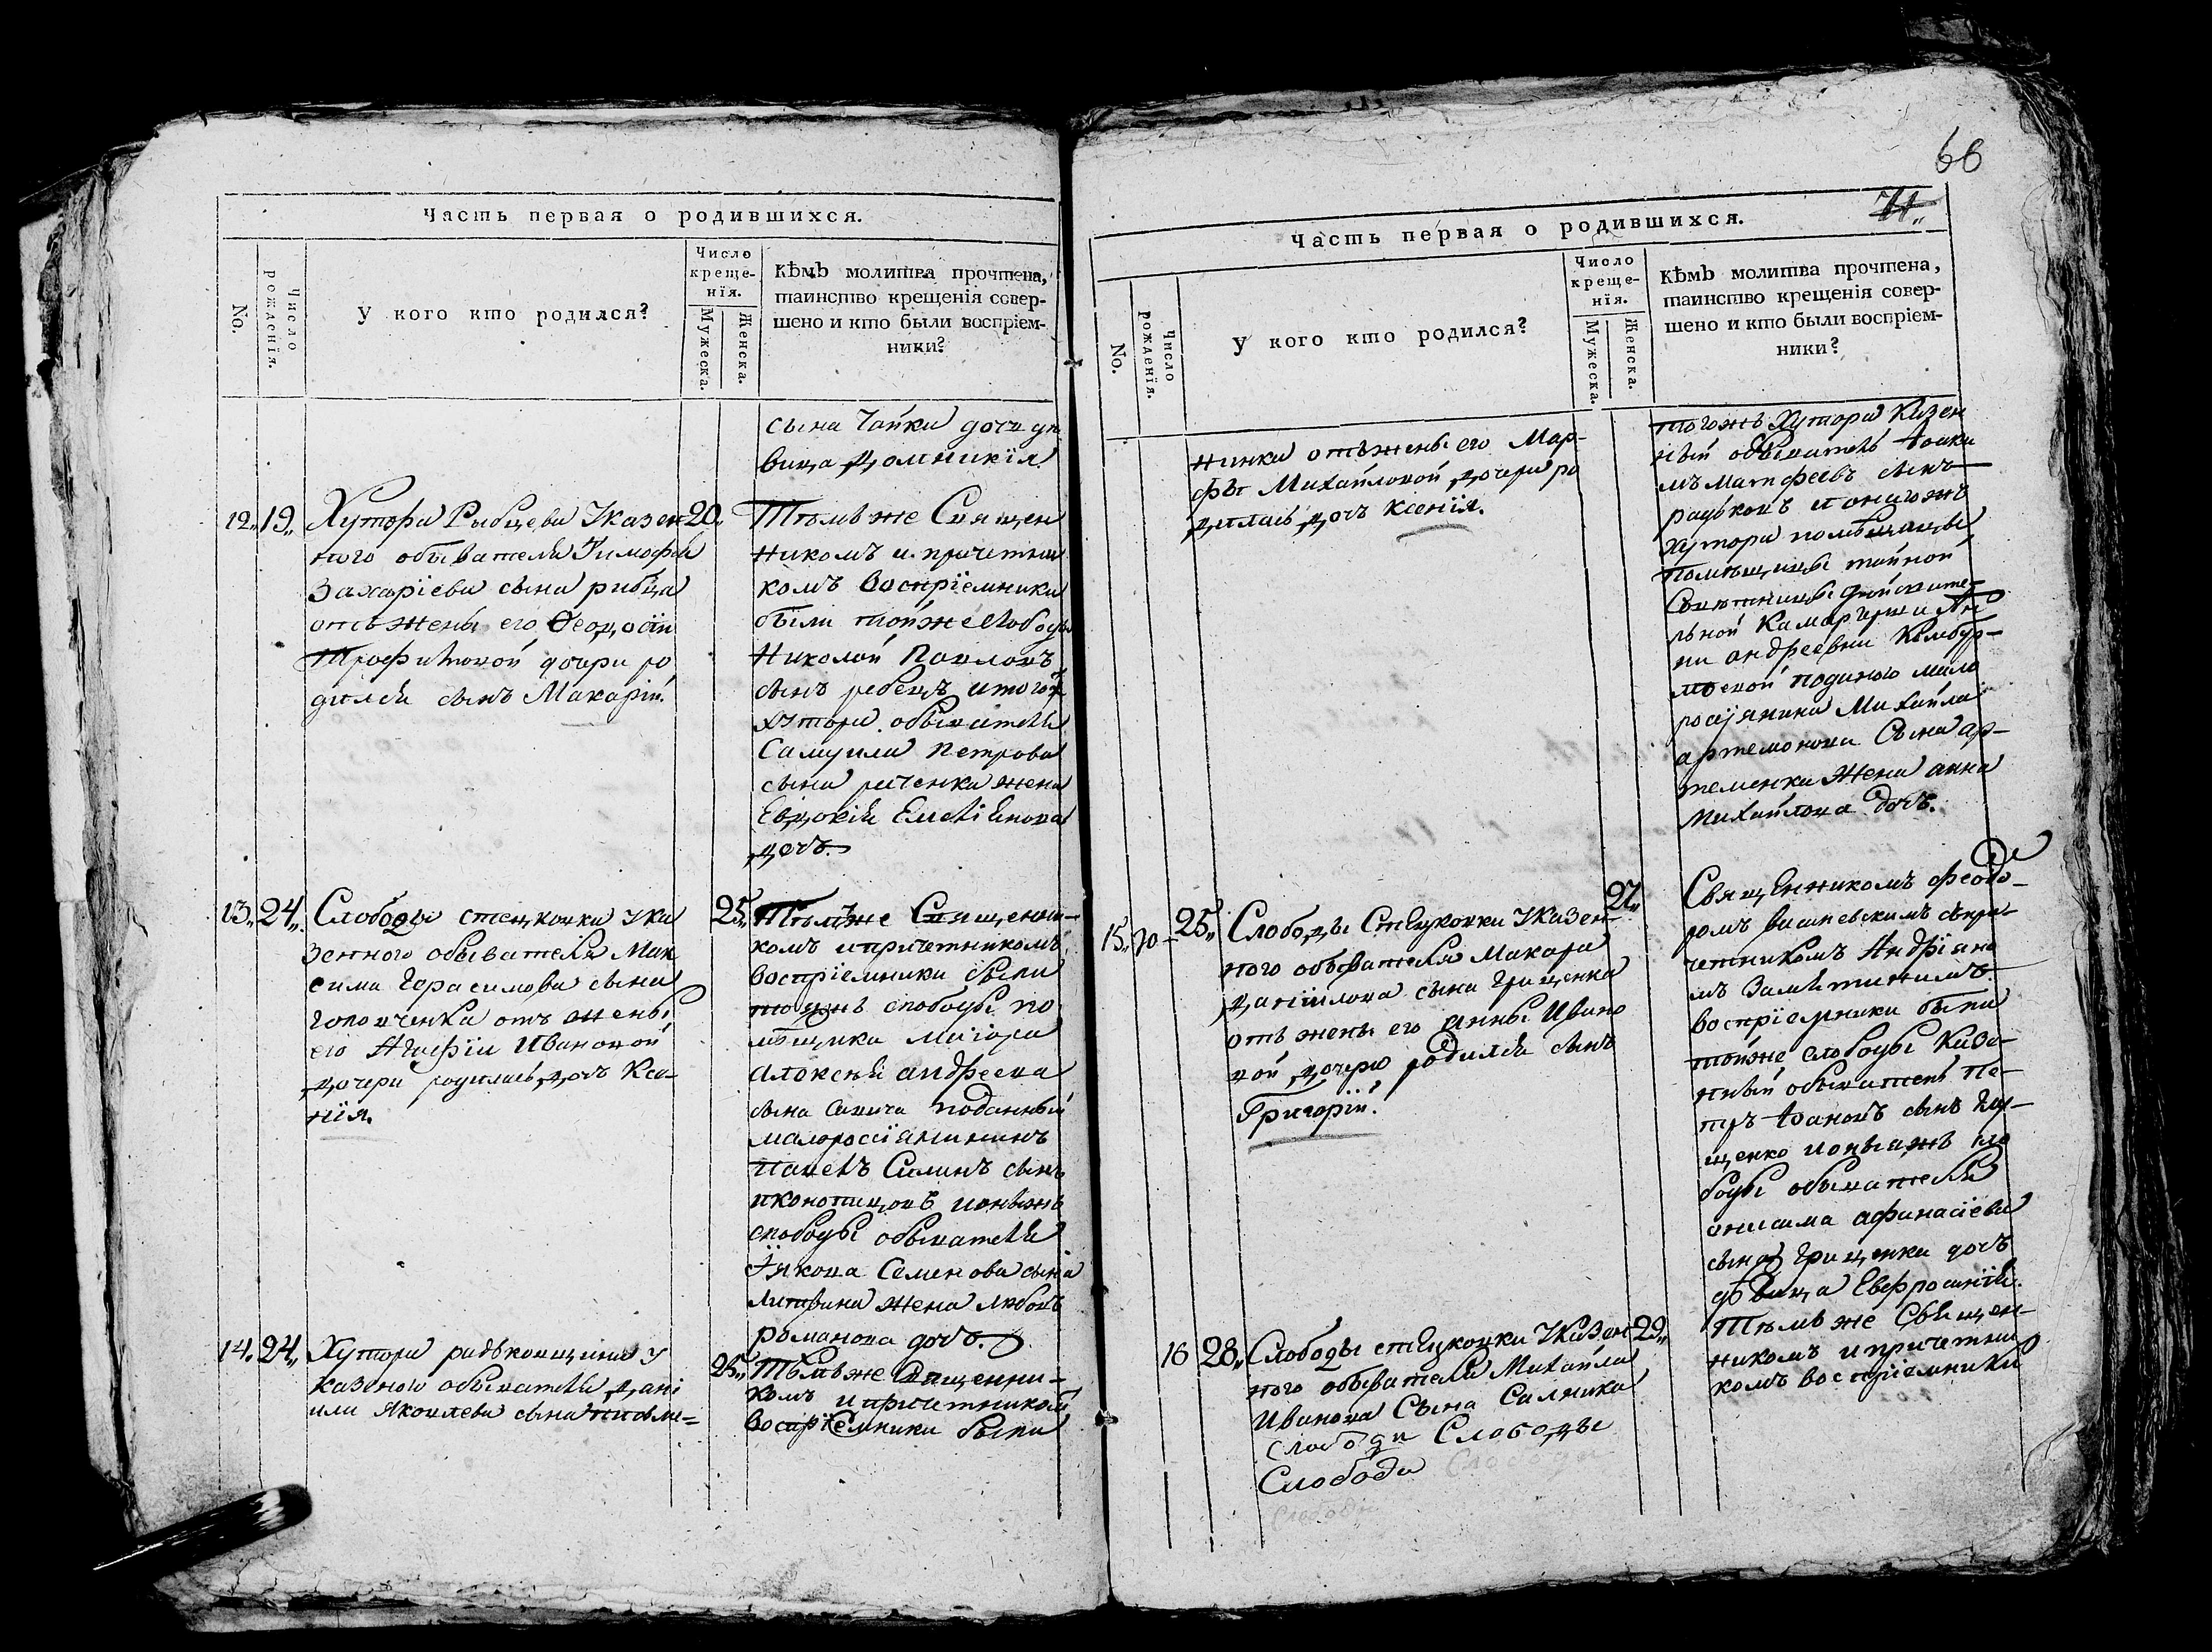 Часть первая о родившихся.
No.
Число рожденія.
У кого кто родился?
Число
креще-
нія.
Мужеска.
Женска.
Кѣмъ молитва прочтена,
таинство крещенія совер-
шено и кто были воспріем-
ники?
сына Чайки дочь дѣ
вица Домникія
12. 19. Хутора Рибцева Указен
ного обывателя Тимофея
Захаріева сына рибца
отъ жены его Феодосіи
Трофимовой дочери ро
дился сынъ Макарій.
20. Тѣмъ же Священ
никомъ и причетни
комъ воспріемники
были той же слободы
Николай Павловъ
сынъ ребецъ и того ж
хутора обывателя
Самуила Петрова
сына жена
Евдокія Емеліянова
дочъ.
13. 24. Слободы стецковки ука
зенного обывателя Мак
сима Герасимова сына
отъ жены
его Агафіи Ивановой
дочери родилась дочъ Ксе-
нія.
25. Тѣмъ же Священни-
комъ и причетникомъ
воспріемники были
тоя жъ слободы по
мѣщика маіора
Алексѣя андреева
сына Савича поданный
малоросіянинъ
Павелъ Силинъ сынъ
и тоя жъ
слободы обывателя
Іякова Семенова сына
Литвина жена Любовъ
романова дочъ.
14. 24. Хутора радьковщины у
казеного обывателя Дані
ила Яковлева сына
25. Тѣмъ же Священни-
комъ и причетником
воспріемники были
66
71.
Часть первая о родившихся.
No.
Число рожденія.
У кого кто родился?
Число
креще-
нія.
Мужеска.
Женска.
Кѣмъ молитва прочтена,
таинство крещенія совер-
шено и кто были воспріем-
ники?
нинки отъ жены его Мар-
фы Михайловой дочери ро
дилась дочъ Ксенія.
того жъ Хутора Казен
ный обыватель Іоаки
мъ Матфеевъ сынъ
радькоъ и онаго жъ
хутора помѣщицы
Помѣщицы тайной
Совѣтницы действите-
льной Камаргерши Ан
ни андреевни Камбур-
лѣевой поданого мало
росіянина Михайла
артемонова Сына ар-
теменка жена анна
Михайлова дочъ.
15. 25. Слободы Стецковки Указен
ного обывателя Макара
Даніилова сына Гриценка
отъ жены его Анны Ивано
вой дочери родился сынъ
Григорій.
27. Священникомъ Феодо-
ромъ вишневскимъ съ при-
четникомъ Андріяно
мъ
воспріемники были
той же слободы Казе-
нный обыватель Пе-
тръ Іоановъ сынъ
и тоя жъ сло
боды обывателя
онисима афанасіева
сына Гриценка дочъ
дѣвица Евфросинія.
16 28. Слободы стецковки Указен
ного обывателя Михайла
Иванова Сына Салника
Слободи Слободы
Слободи Слободи
Слободи
29. Тѣмъ же Священ-
никомъ и причетни
комъ воспріемники